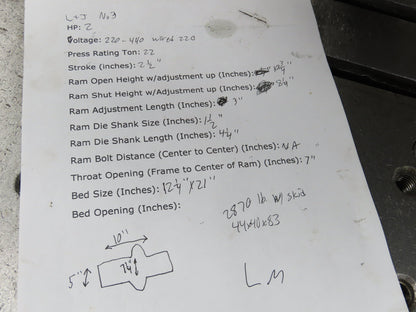 L & J No. 3
HP: 2
Voltage: 220-440 wired 220
Press Rating Ton: 22
Stroke (inches): 2 1/2"
Ram Open Height w/adjustment up (Inches):
Ram Shut Height w/Adjustment up (Inches):
Ram Adjustment Length (Inches): 3"
Ram Die Shank Size (Inches): 1 1/2"
Ram Die Shank Length (Inches):
Ram Bolt Distance (Center to Center) (Inches): NA
Throat Opening (Frame to Center of Ram) (Inches): 7"
Bed Size (Inches): 12 1/4" X 21"
Bed Opening (Inches):
2870 lb w/ skid
44x40x83
10"
5"